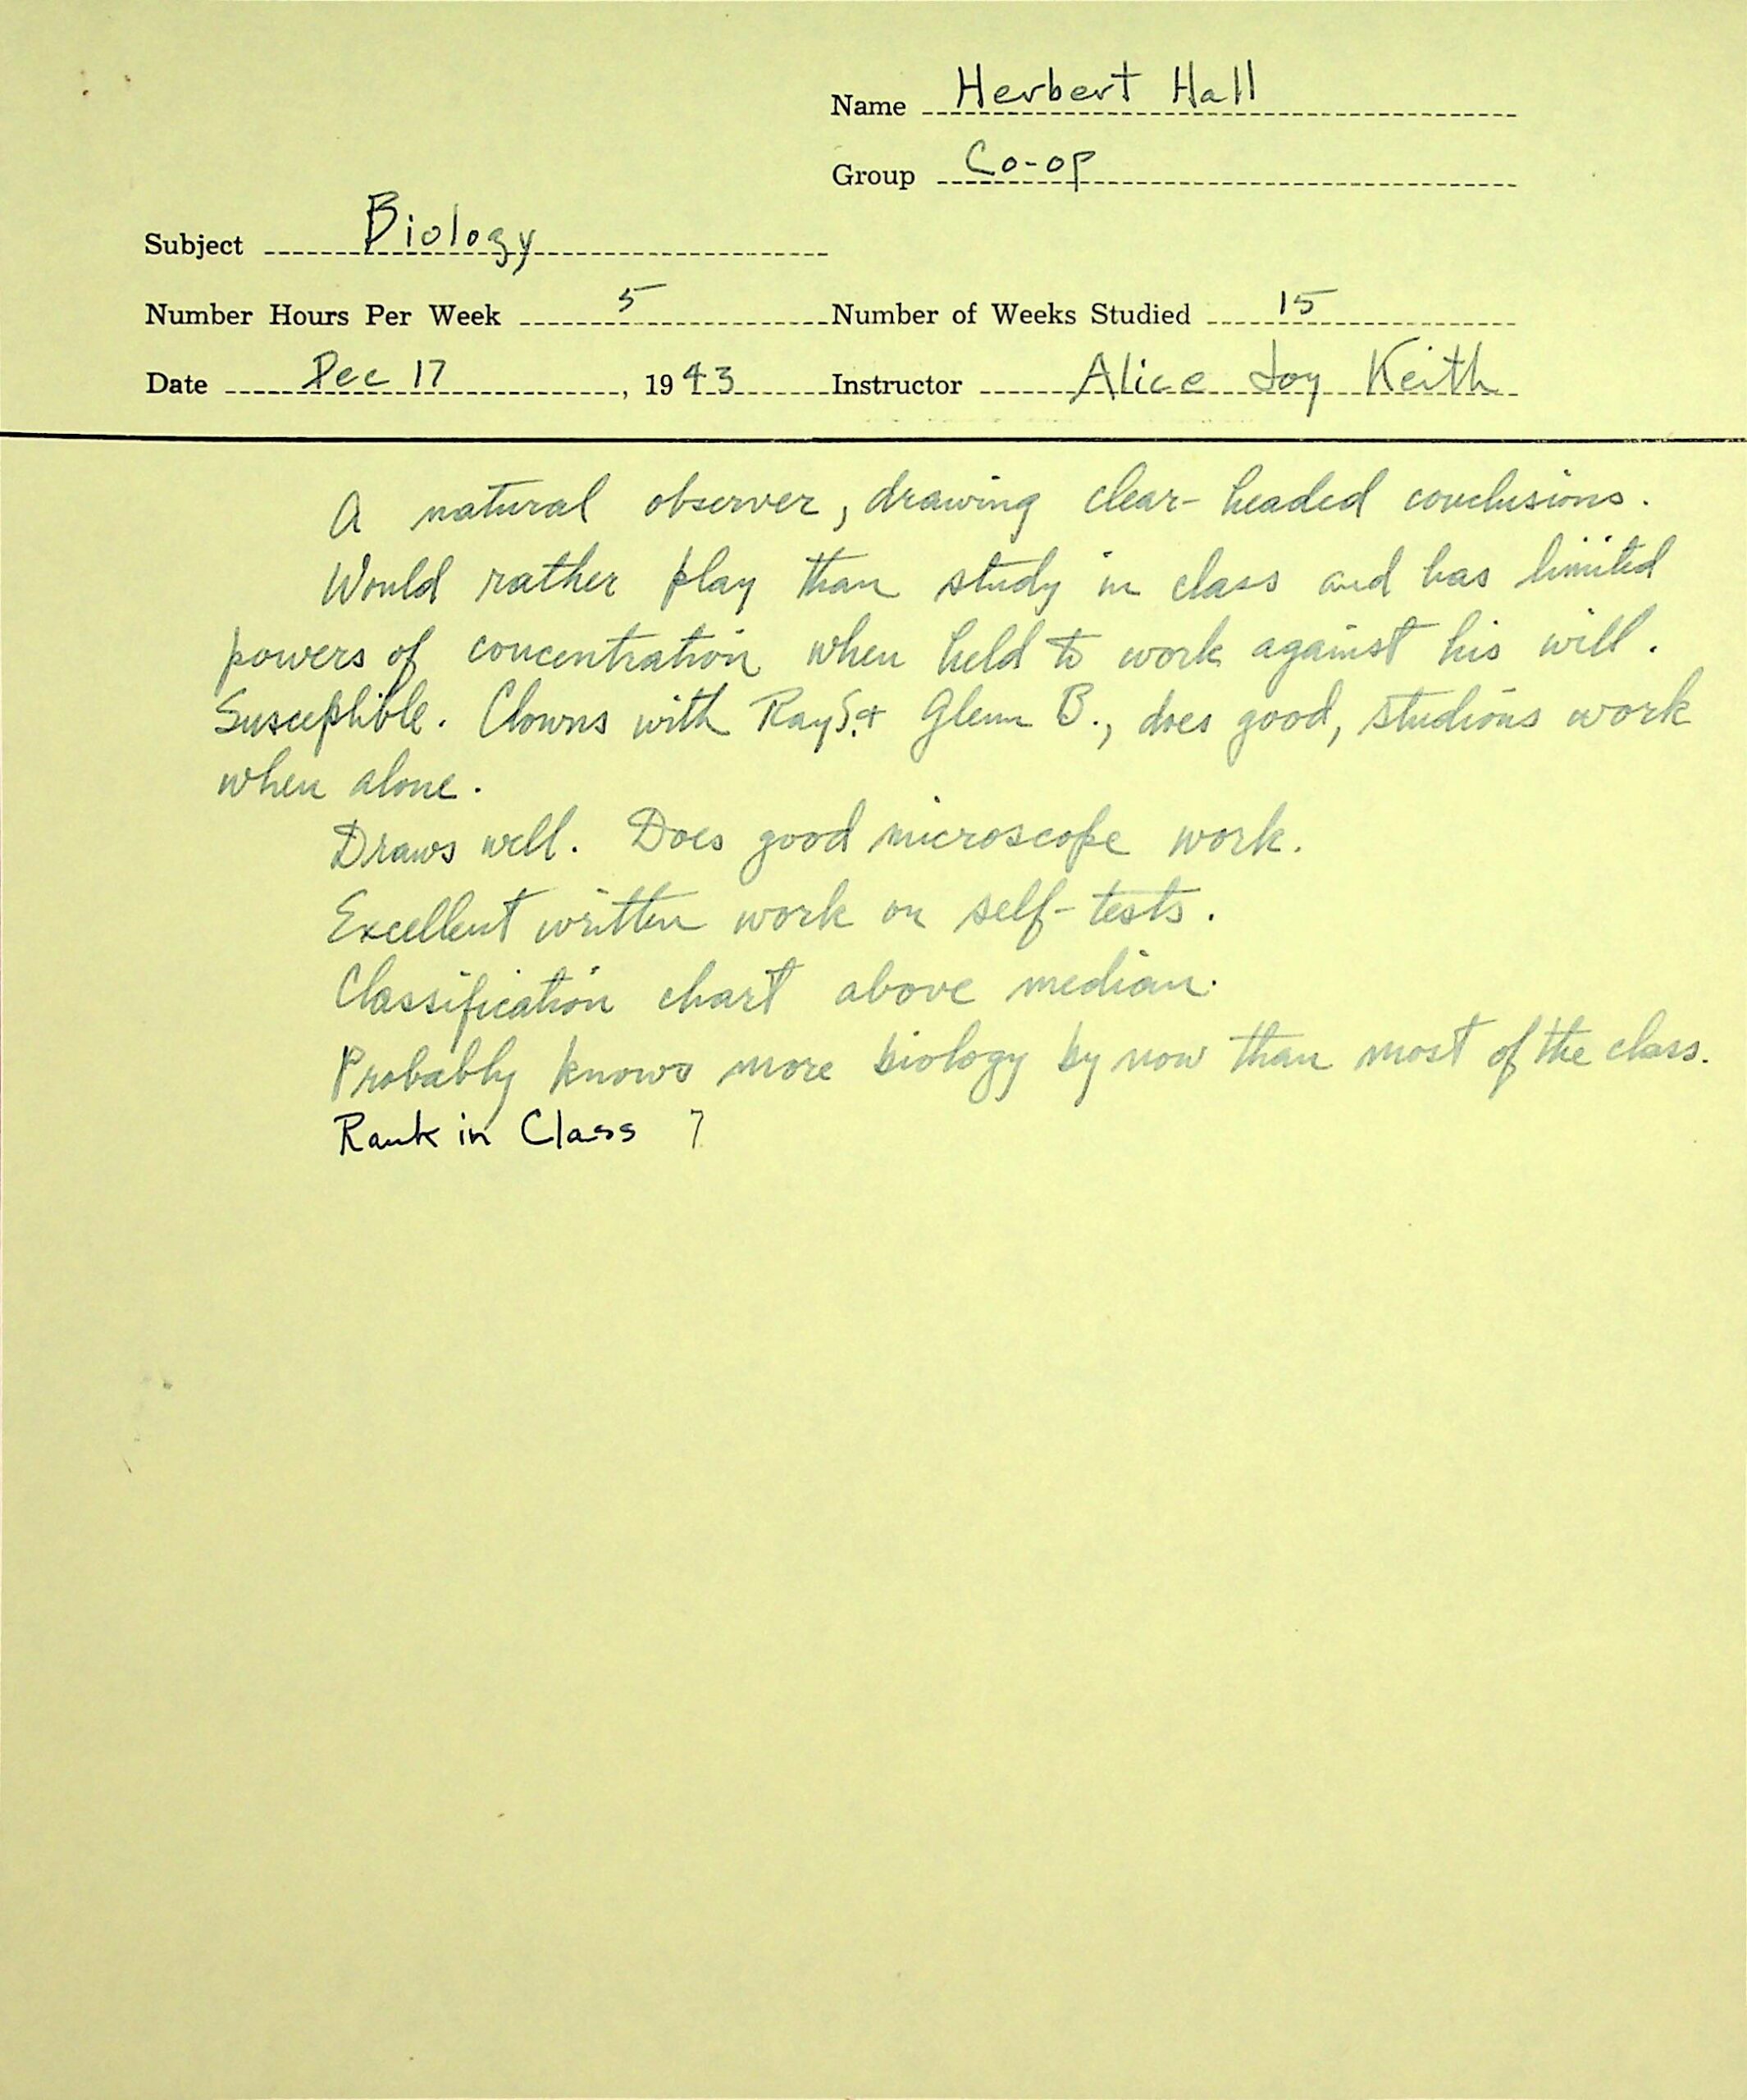 Name Herbert Hall
Group Co-op
Subject Biology
Number Hours Per Week 5 Number of Weeks Studied 15
Date Dec 17, 1943 Instructor Alice Joy Keith
A natural observer, drawing clear-headed conclusions.
Would rather play than study in class and has limited
powers of concentration when held to work against his will.
Susceptible. Clowns with Ray S. + Glenn B., does good, studious work
when alone.
Draws well. Does good microscope work.
Excellent written work on self-tests.
Classification chart above median.
Probably knows more biology by now than most of the class.
Rank in Class 7